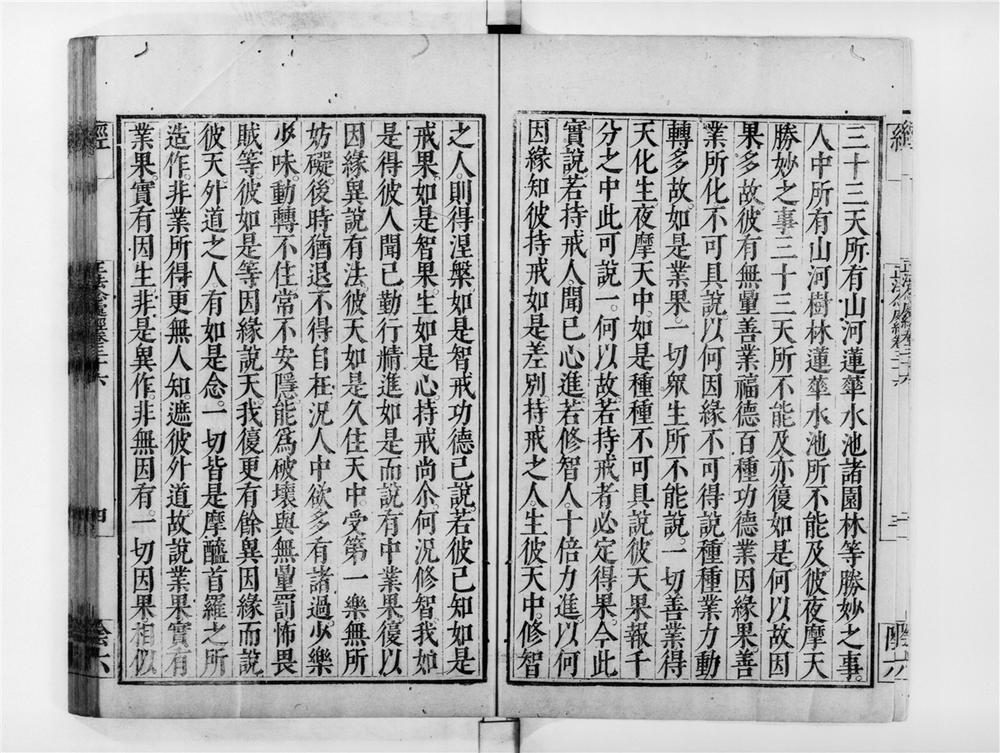 三十三天所有山河蓮華水池諸園林等勝妙之事。
人中所有山河樹林蓮華水池所不能及。彼夜摩天
勝妙之事三十三天所不能及亦復如是。何以故因
果多故。彼有無量善業福德百種功德業因緣果。善
業所化不可具說以何因緣不可得說種種業力動
轉多故。如是業果。一切眾生所不能說。一切善業得
天化生夜摩天中。如是種種不可具說彼天果報千
分之中此可說一。何以故。若持戒者必定得果。今此
實說若持戒人。聞已心進若修智人。十倍力進。以何
因緣知彼持戒如是差別。持戒之人。生彼天中。修智
之人。則得涅槃如是智戒功德已說。若彼已知如是
戒果。如是智果。生如是心。持戒尚尒。何況修智。我如
是得彼人聞已勤行精進如是而說有中業果。復以
因緣異說有法。彼天如是久住天中。受第一樂無所
妨礙後時猶退不得自在況人中欲多有諸過。少樂
少味。動轉不住常不安隱。能為破壞與無量罰怖畏
賊等。彼如是等因緣說天。我復更有餘異因緣而說
彼天外道之人。有如是念。一切皆是摩醯首羅之所
造作。非業所得更無人知。遮彼外道。故說業果實有
業果。實有因生非是異作。非無因有。一切因果相似
經
正法念處經卷三十六
四